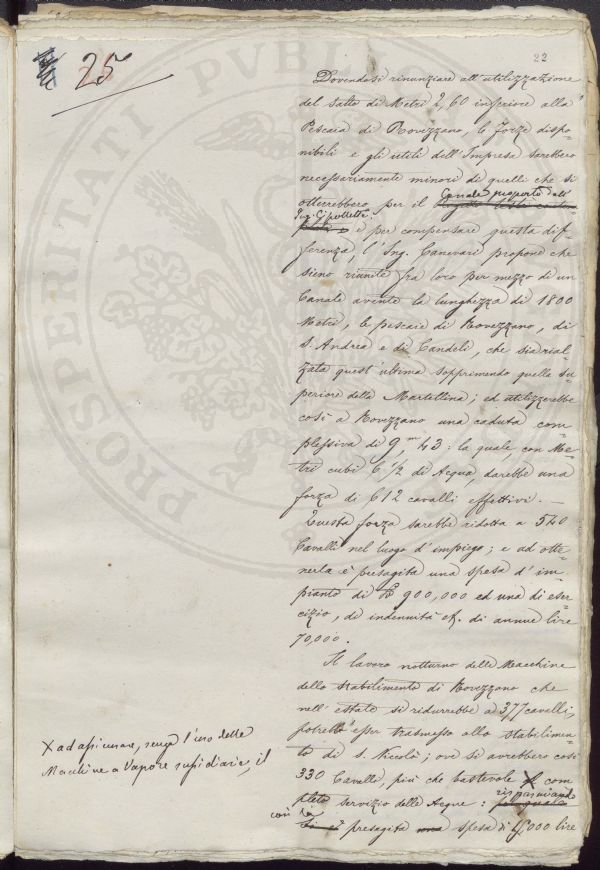 25
22
PROSPERITATI PVBLICAE
Dovendosi rinunziare all'utilizzazione
del salto di Metri 2,60 inferiore alla
Pescaia di Rovezzano, le forze dispo=
nibili e gli utili dell'Impresa sarebbero
necessariamente minori di quelli che si
Canale proposto dall'
otterrebbero per il
Ing. Cipolletti
e per compensare questa dif=
ferenza, l'Ing. Canevari propone che
sieno riunite fra loro per mezzo di un
Canale avente la lunghezza di 1800
Metri, le pescaie di Rovezzano, di
S. Andrea e di Candeli, che sia rial=
zata quest'ultima sopprimendo quella su=
periore della Martellina; ed utilizzerebbe
così a Rovezzano una caduta com=
plessiva di 9,m 43: la quale, con Me=
tri cubi 6 1/2 di Acqua, darebbe una
forza di 612 cavalli effettivi. —
Questa forza sarebbe ridotta a 540
Cavalli nel luogo d'impiego; e ad otte=
nerla è presagita una spesa d'im=
pianto di £ 900,000 ed una di eser=
cizio, di indennità &. di annue lire
70,000.
Il lavoro notturno delle Macchine
dello stabilimento di Rovezzano che
nell'estate si ridurrebbe a 377 cavalli,
potrebbe esser trasmesso allo stabilimen=
to di S. Niccolò; ove si avrebbero così
330 Cavalli, più che bastevole X com
pleto servizio delle Acque: risparmiando
con la presagita spesa di 15,000 lire
X ad assicurare, senza l'uso delle
Macchine a Vapore sussidiarie, il